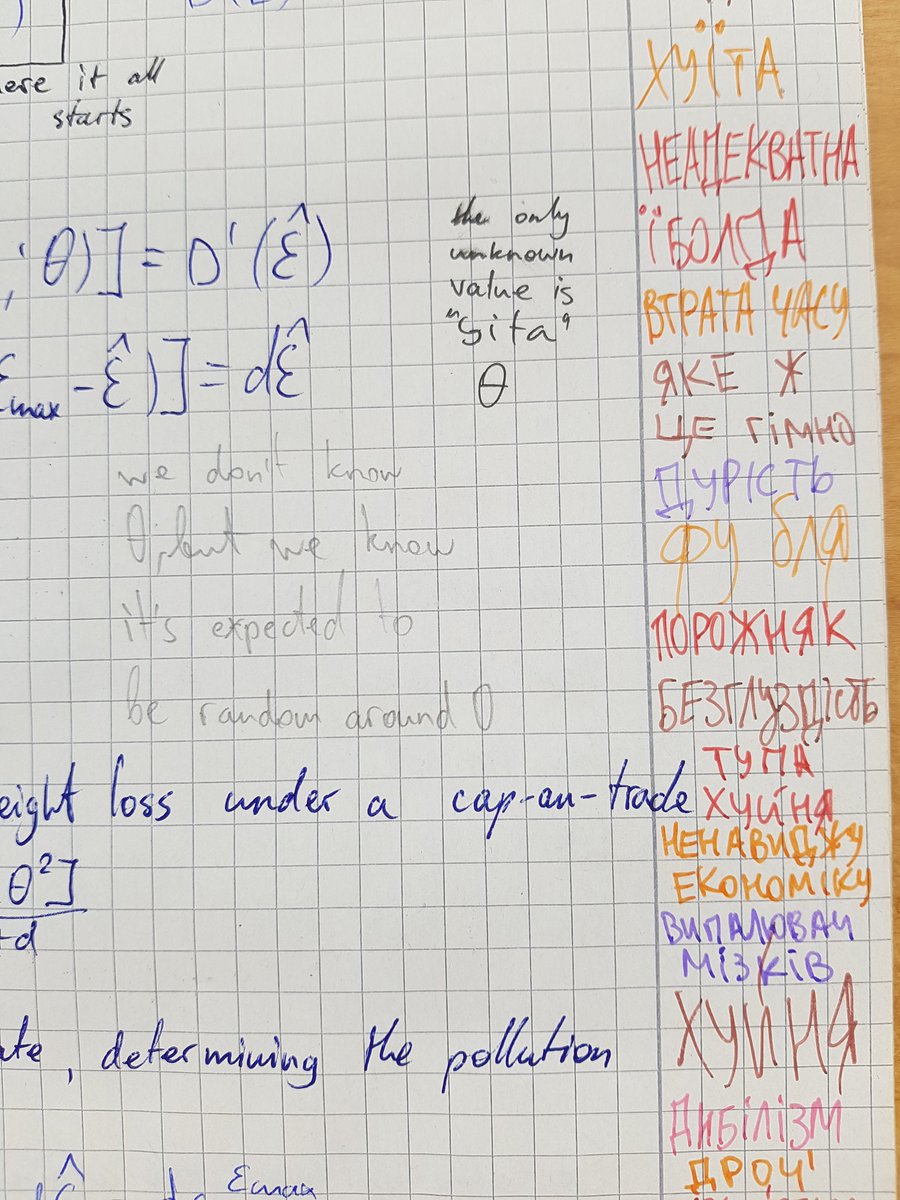 ere it all
starts
; θ)] = D'(ε̂)
max - ε̂)] = dε̂
the only
unknown
value is
"Sita"
θ
we don't know
θ, but we know
it's expected to
be random around 0
eight loss under a cap-an-trade
θ²]
+d
ate, determining the pollution
εmax
ХУЇТА
НЕАДЕКВАТНА
ЇБОЛДА
ВТРАТА ЧАСУ
ЯКЕ Ж
ЦЕ ГІМНО
ДУРІСТЬ
ФУ БЛЯ
ПОРОЖНЯК
БЕЗГЛУЗДІСТЬ
ТУПА
ХУЙНЯ
НЕНАВИДЖУ
ЕКОНОМІКУ
ВИПАЛЮВАЧ
МІЗКІВ
ХУЙНЯ
ДИБІЛІЗМ
ДРОЧ'